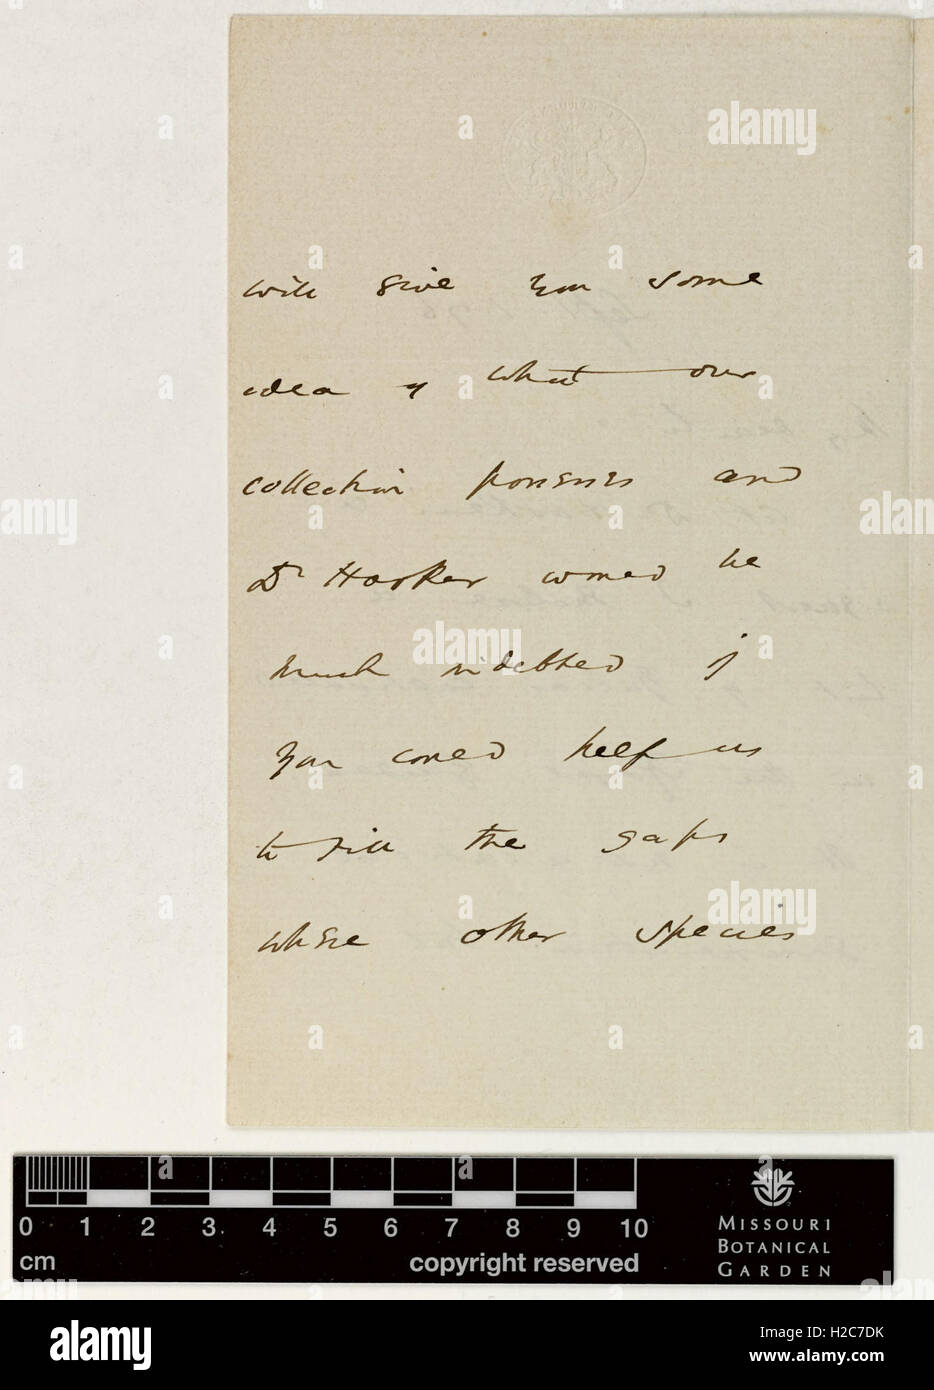 will give you some
idea of what our
collection possesses and
Dr Hooker would be
much indebted if
you could help us
to fill the gaps
where other species
0 1 2 3 4 5 6 7 8 9 10
cm
copyright reserved
MISSOURI
BOTANICAL
GARDEN
alamy
alamy
Image ID: H2C7DK
www.alamy.com